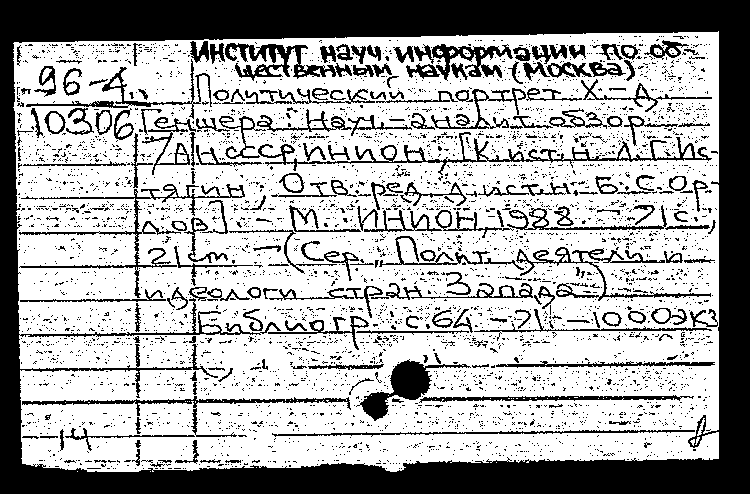 ИНСТИТУТ НАУЧ. ИНФОРМАЦИИ ПО ОБ-
ЩЕСТВЕННЫМ НАУКАМ (МОСКВА)
96-4
10306
Политический портрет Х.-Д.
Геншера: Науч.-аналит. обзор
/ АН СССР, ИНИОН; [К.ист.н. Л.Г.Ис-
тягин; Отв. ред. д.ист.н. Б.С.Ор-
лов]. - М.: ИНИОН, 1988. - 71с.;
21см. - (Сер. „Полит. деятели и
идеологи стран Запада")
Библиогр.: с.64-71. - 1000экз
14